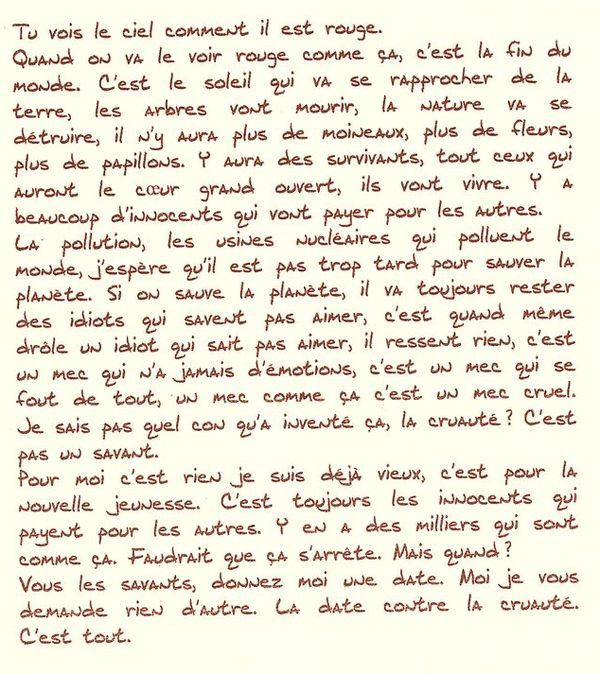 Tu vois le ciel comment il est rouge.
Quand on va le voir rouge comme ça, c'est la fin du
monde. C'est le soleil qui va se rapprocher de la
terre, les arbres vont mourir, la nature va se
détruire, il n'y aura plus de moineaux, plus de fleurs,
plus de papillons. Y aura des survivants, tout ceux qui
auront le cœur grand ouvert, ils vont vivre. Y a
beaucoup d'innocents qui vont payer pour les autres.
La pollution, les usines nucléaires qui polluent le
monde, j'espère qu'il est pas trop tard pour sauver la
planète. Si on sauve la planète, il va toujours rester
des idiots qui savent pas aimer, c'est quand même
drôle un idiot qui sait pas aimer, il ressent rien, c'est
un mec qui n'a jamais d'émotions, c'est un mec qui se
fout de tout, un mec comme ça c'est un mec cruel.
Je sais pas quel con qu'a inventé ça, la cruauté ? C'est
pas un savant.
Pour moi c'est rien je suis déjà vieux, c'est pour la
nouvelle jeunesse. C'est toujours les innocents qui
payent pour les autres. Y en a des milliers qui sont
comme ça. Faudrait que ça s'arrête. Mais quand ?
Vous les savants, donnez moi une date. Moi je vous
demande rien d'autre. La date contre la cruauté.
C'est tout.